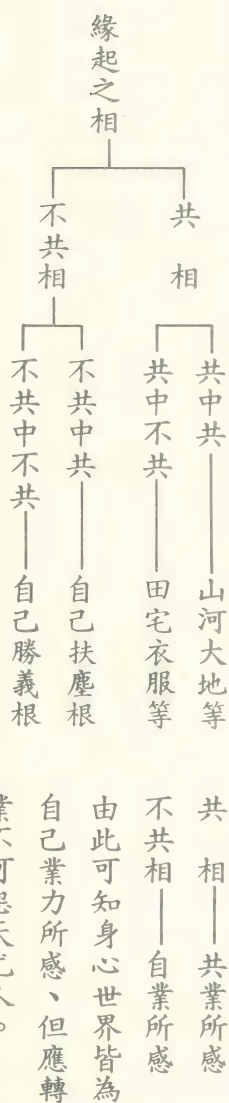 緣起之相
共相
共中共——山河大地等
共中不共——田宅衣服等
不共相
不共中共——自己扶塵根
不共中不共——自己勝義根
共相——共業所感
不共相——自業所感
由此可知身心世界皆為
自己業力所感、但應轉
業不可怨天尤人。